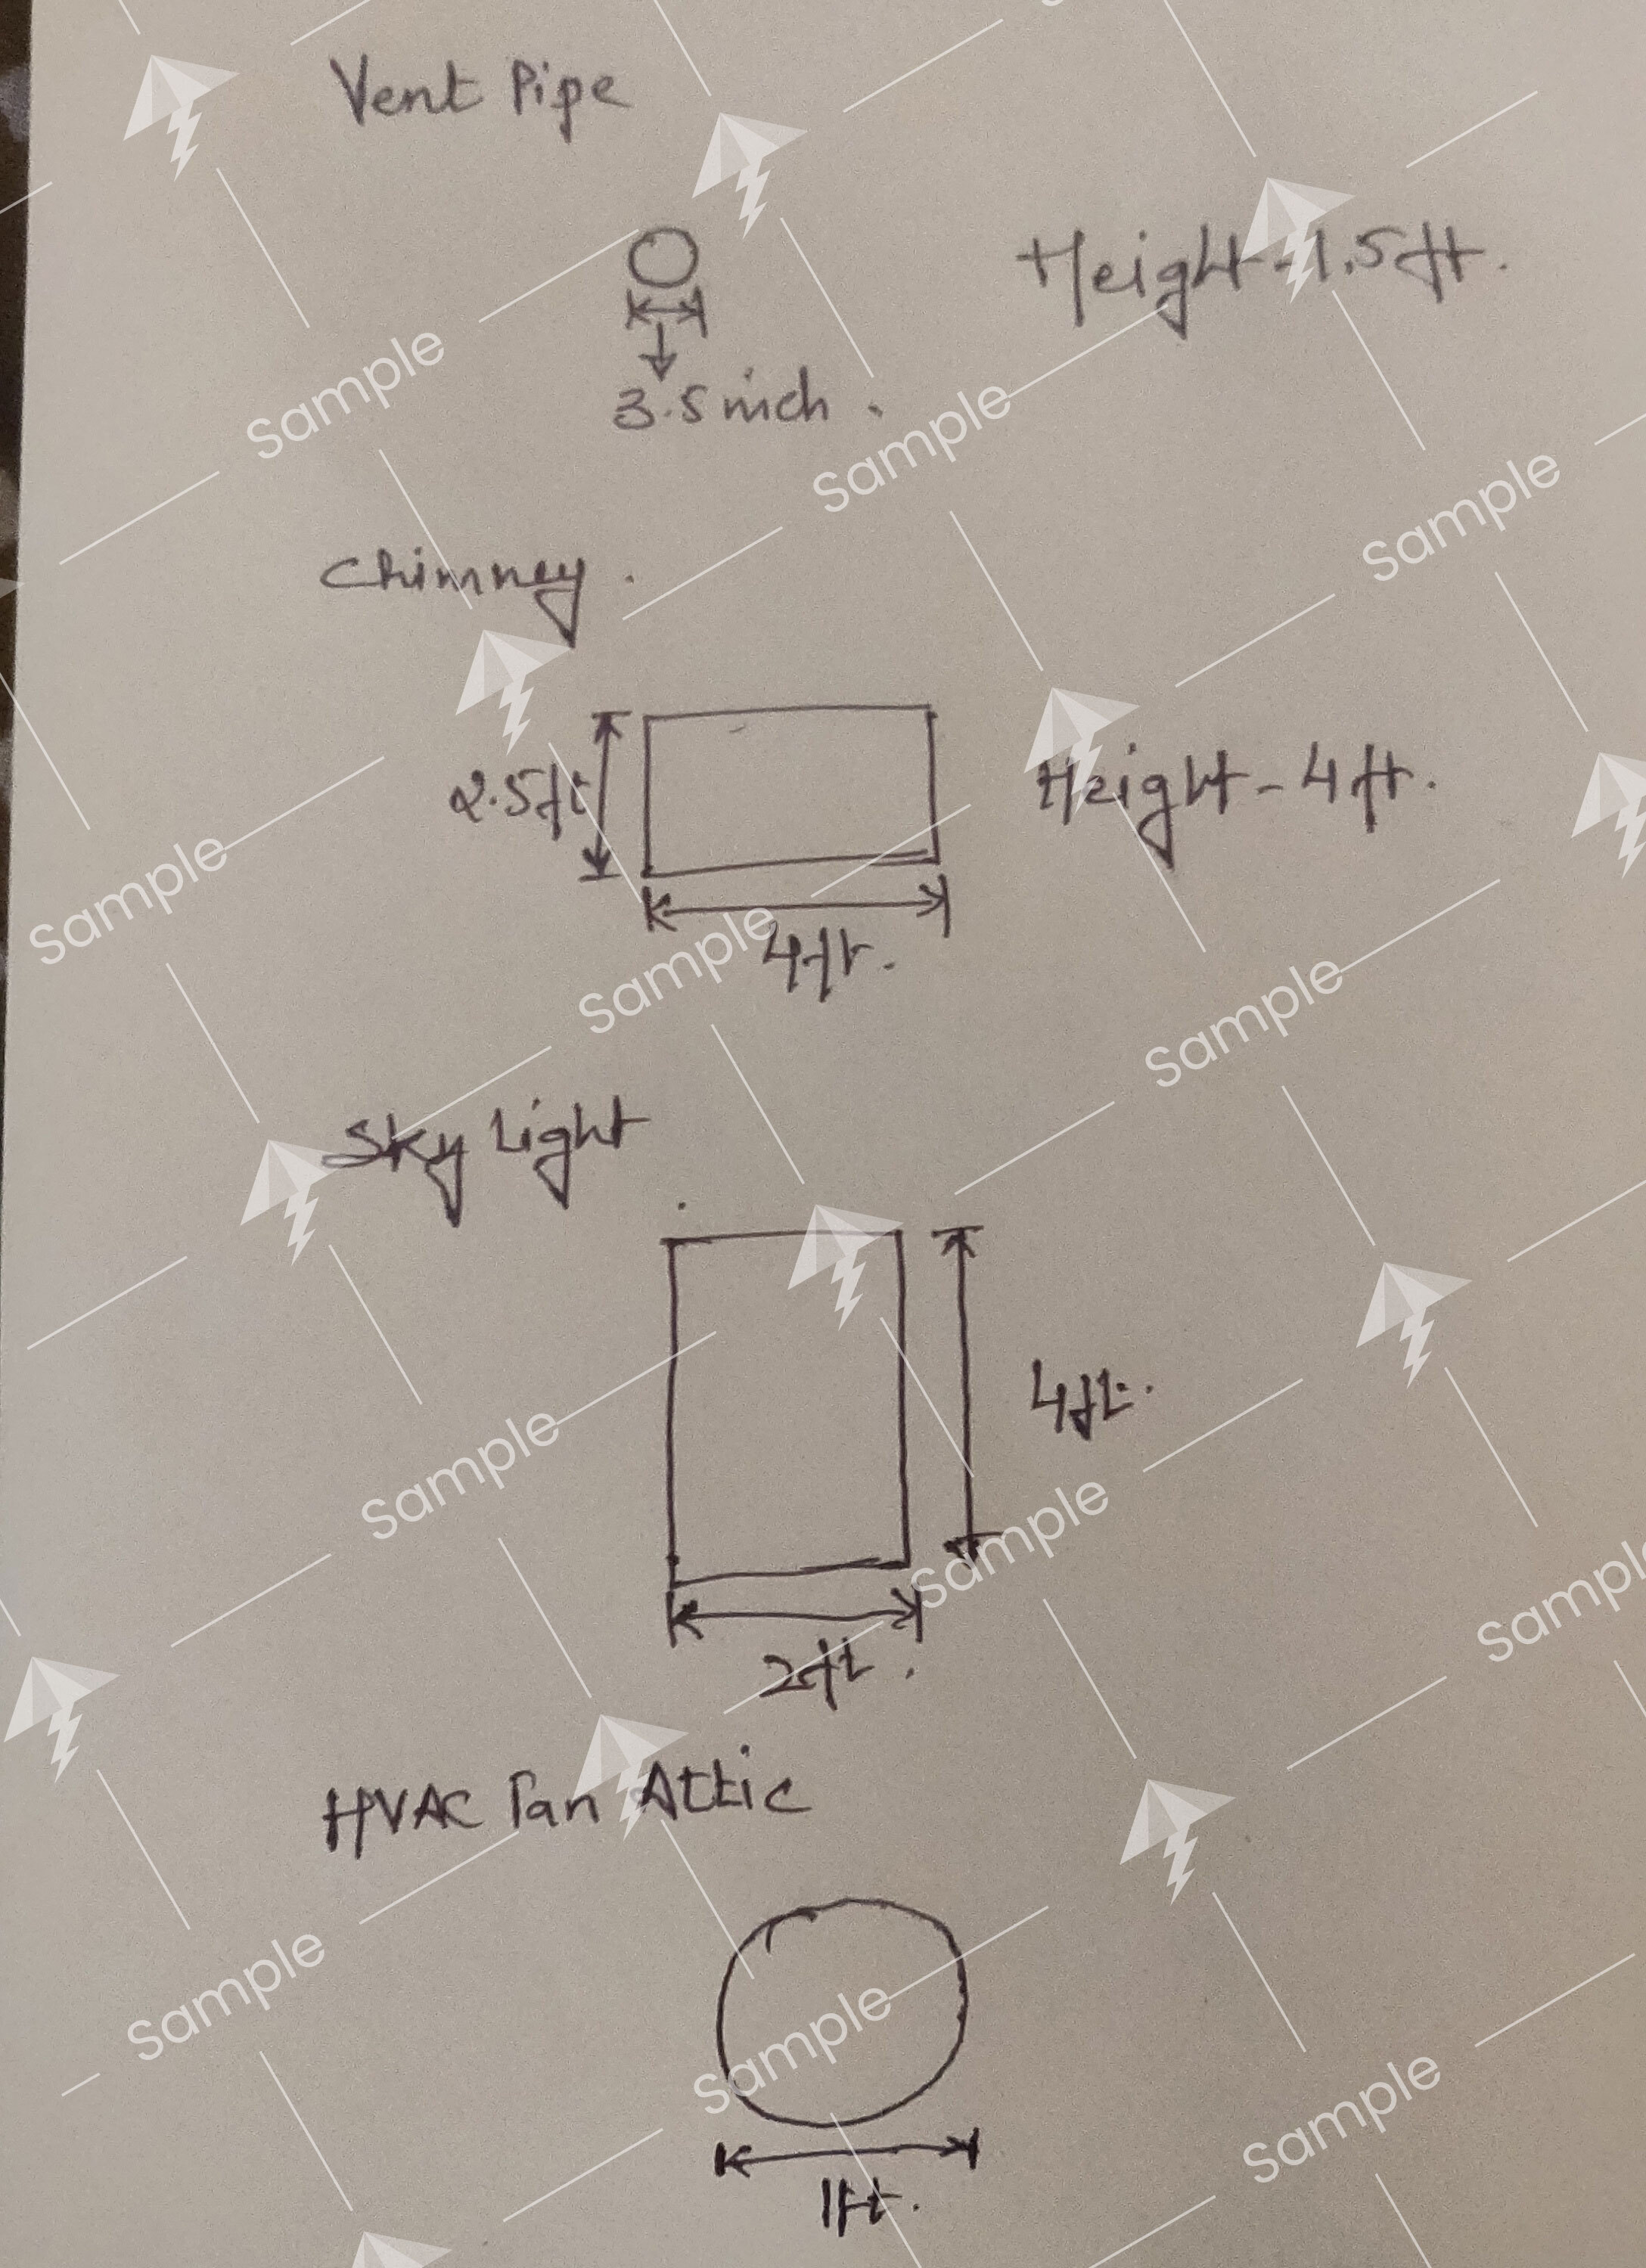 Vent Pipe
Height - 1.5 ft.
3.5 inch.
Chimney.
2.5 ft
Height - 4 ft.
4 ft.
Sky Light
4 ft.
2 ft.
HVAC Fan Attic
1 ft.
Sample
Sample
Sample
Sample
Sample
Sample
Sample
Sample
Sample
Sample
Sample
Sample